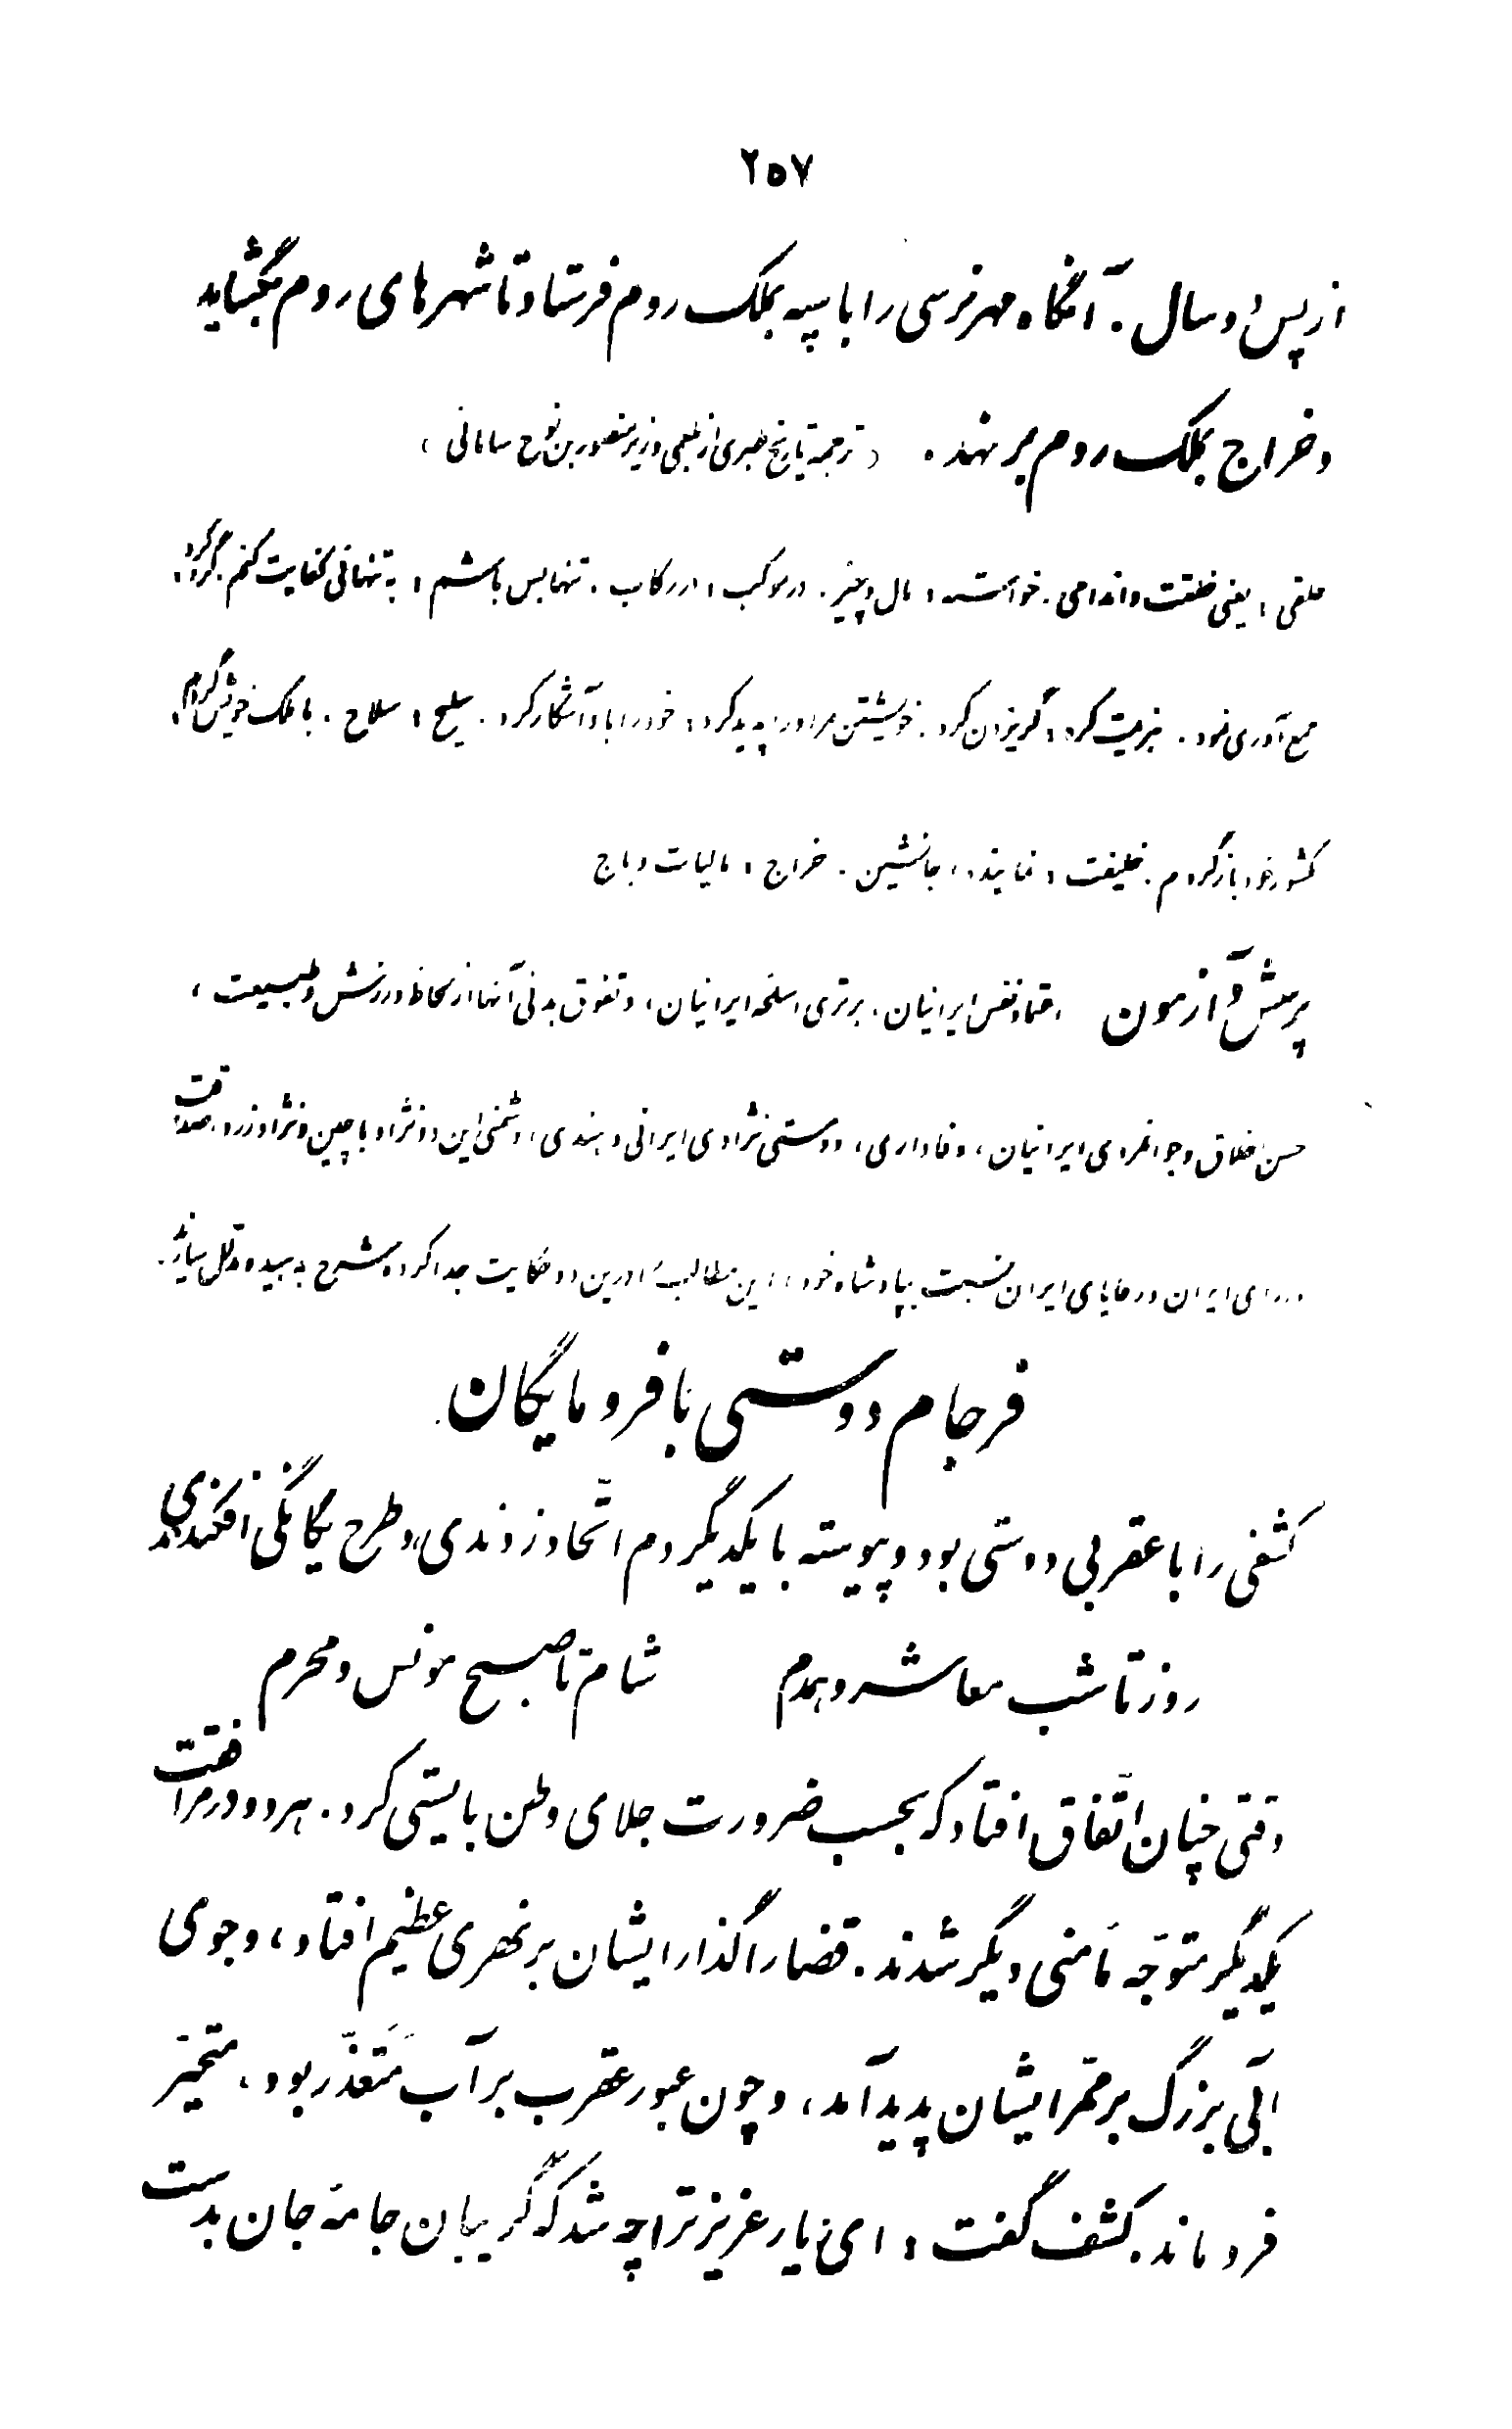 ۲۵۷
از پس دو سال . آنگاه مهر نرسی را با سپه بملک روم فرستاد تا شهرهای روم بگشاید
و خراج بملک روم بر نهد . ( ترجمه تاریخ طبری از بلعمی وزیر منصور بن نوح سامانی )
خلقی : یعنی خلقت و اندامی . خواسته : مال و چیز . در موکب : در رکاب . تنها بس باشم : به تنهائی کفایت کنم . گرد کرد :
جمع آوری نمود . هزیمت کرد : گریزان کرد . خویشتن مر او را پدید کرد : خود را باو آشکار کرد . سلیح : سلاح . با ملک خویش گرایم :
کشور خود باز گردم . خلیفت : نماینده ، جانشین . خراج : مالیات و باج
پرسش و آزمون اعتماد نفس ایرانیان ، برتری اسلحه ایرانیان ، و تفوق بدنی آنها از لحاظ ورزش و طبیعت ،
حسن اخلاق و جوانمردی ایرانیان ، وفاداری ، دوستی نژادی ایرانی و هندی ، دشمنی این دو نژاد با چین و نژاد زرد ، صداقت
وزرای ایران و رعایای ایران نسبت بپادشاه خود ، این مطالب را درین دو حکایت جدا کرده شرح بدهید و مدلل سازید .
فرجام دوستی با فرومایگان
کشفی را با عقربی دوستی بود و پیوسته با یکدیگر دم اتّحاد زدندی ، و طرح یگانگی افکندندی
روز تا شب معاشر و همدم شام تا صبح مونس و محرم
وقتی چنان اتّفاق افتاد که بحسب ضرورت جلای وطن بایستی کرد . هر دو در مرافقت
یکدیگر متوجّه مَأمنی دیگر شدند . قضا را گذار ایشان بر نهری عظیم افتاد ، و جوی
آبی بزرگ بر ممّر ایشان پدید آمد ، و چون عبور عقرب بر آب مُتَعذّر بود ، متحیّر
فرو ماند . کشف گفت : ای یار عزیز ترا چه شد که گریبان جامهٔ جان بدست